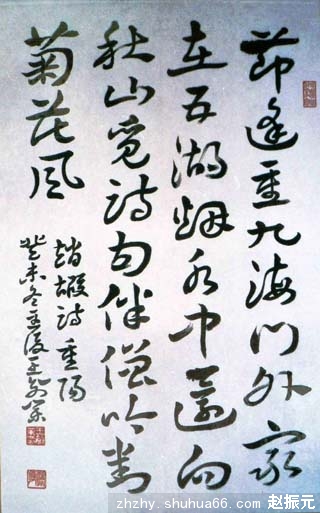 節逢重九海門外家
在五湖烟水中還向
秋山覓詩句伴僧吟對
菊花風
趙嘏詩重陽
癸未冬至後王
zhzhy.shuhua66.com 赵振元